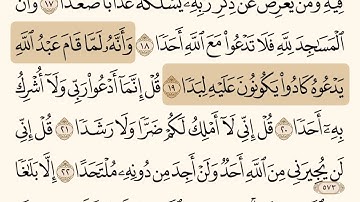 فِيهِ وَمَن يُعْرِضْ عَن ذِكْرِ رَبِّهِۦ يَسْلُكْهُ عَذَابًا صَعَدًا ١٧ وَأَنَّ
ٱلْمَسَٰجِدَ لِلَّهِ فَلَا تَدْعُوا۟ مَعَ ٱللَّهِ أَحَدًا ١٨ وَأَنَّهُۥ لَمَّا قَامَ عَبْدُ ٱللَّهِ
يَدْعُوهُ كَادُوا۟ يَكُونُونَ عَلَيْهِ لِبَدًا ١٩ قُلْ إِنَّمَآ أَدْعُوا۟ رَبِّى وَلَآ أُشْرِكُ
بِهِۦٓ أَحَدًا ٢٠ قُلْ إِنِّى لَآ أَمْلِكُ لَكُمْ ضَرًّا وَلَا رَشَدًا ٢١ قُلْ إِنِّى
لَن يُجِيرَنِى مِنَ ٱللَّهِ أَحَدٌ وَلَنْ أَجِدَ مِن دُونِهِۦ مُلْتَحَدًا ٢٢ إِلَّا بَلَٰغًا
٥٧٣